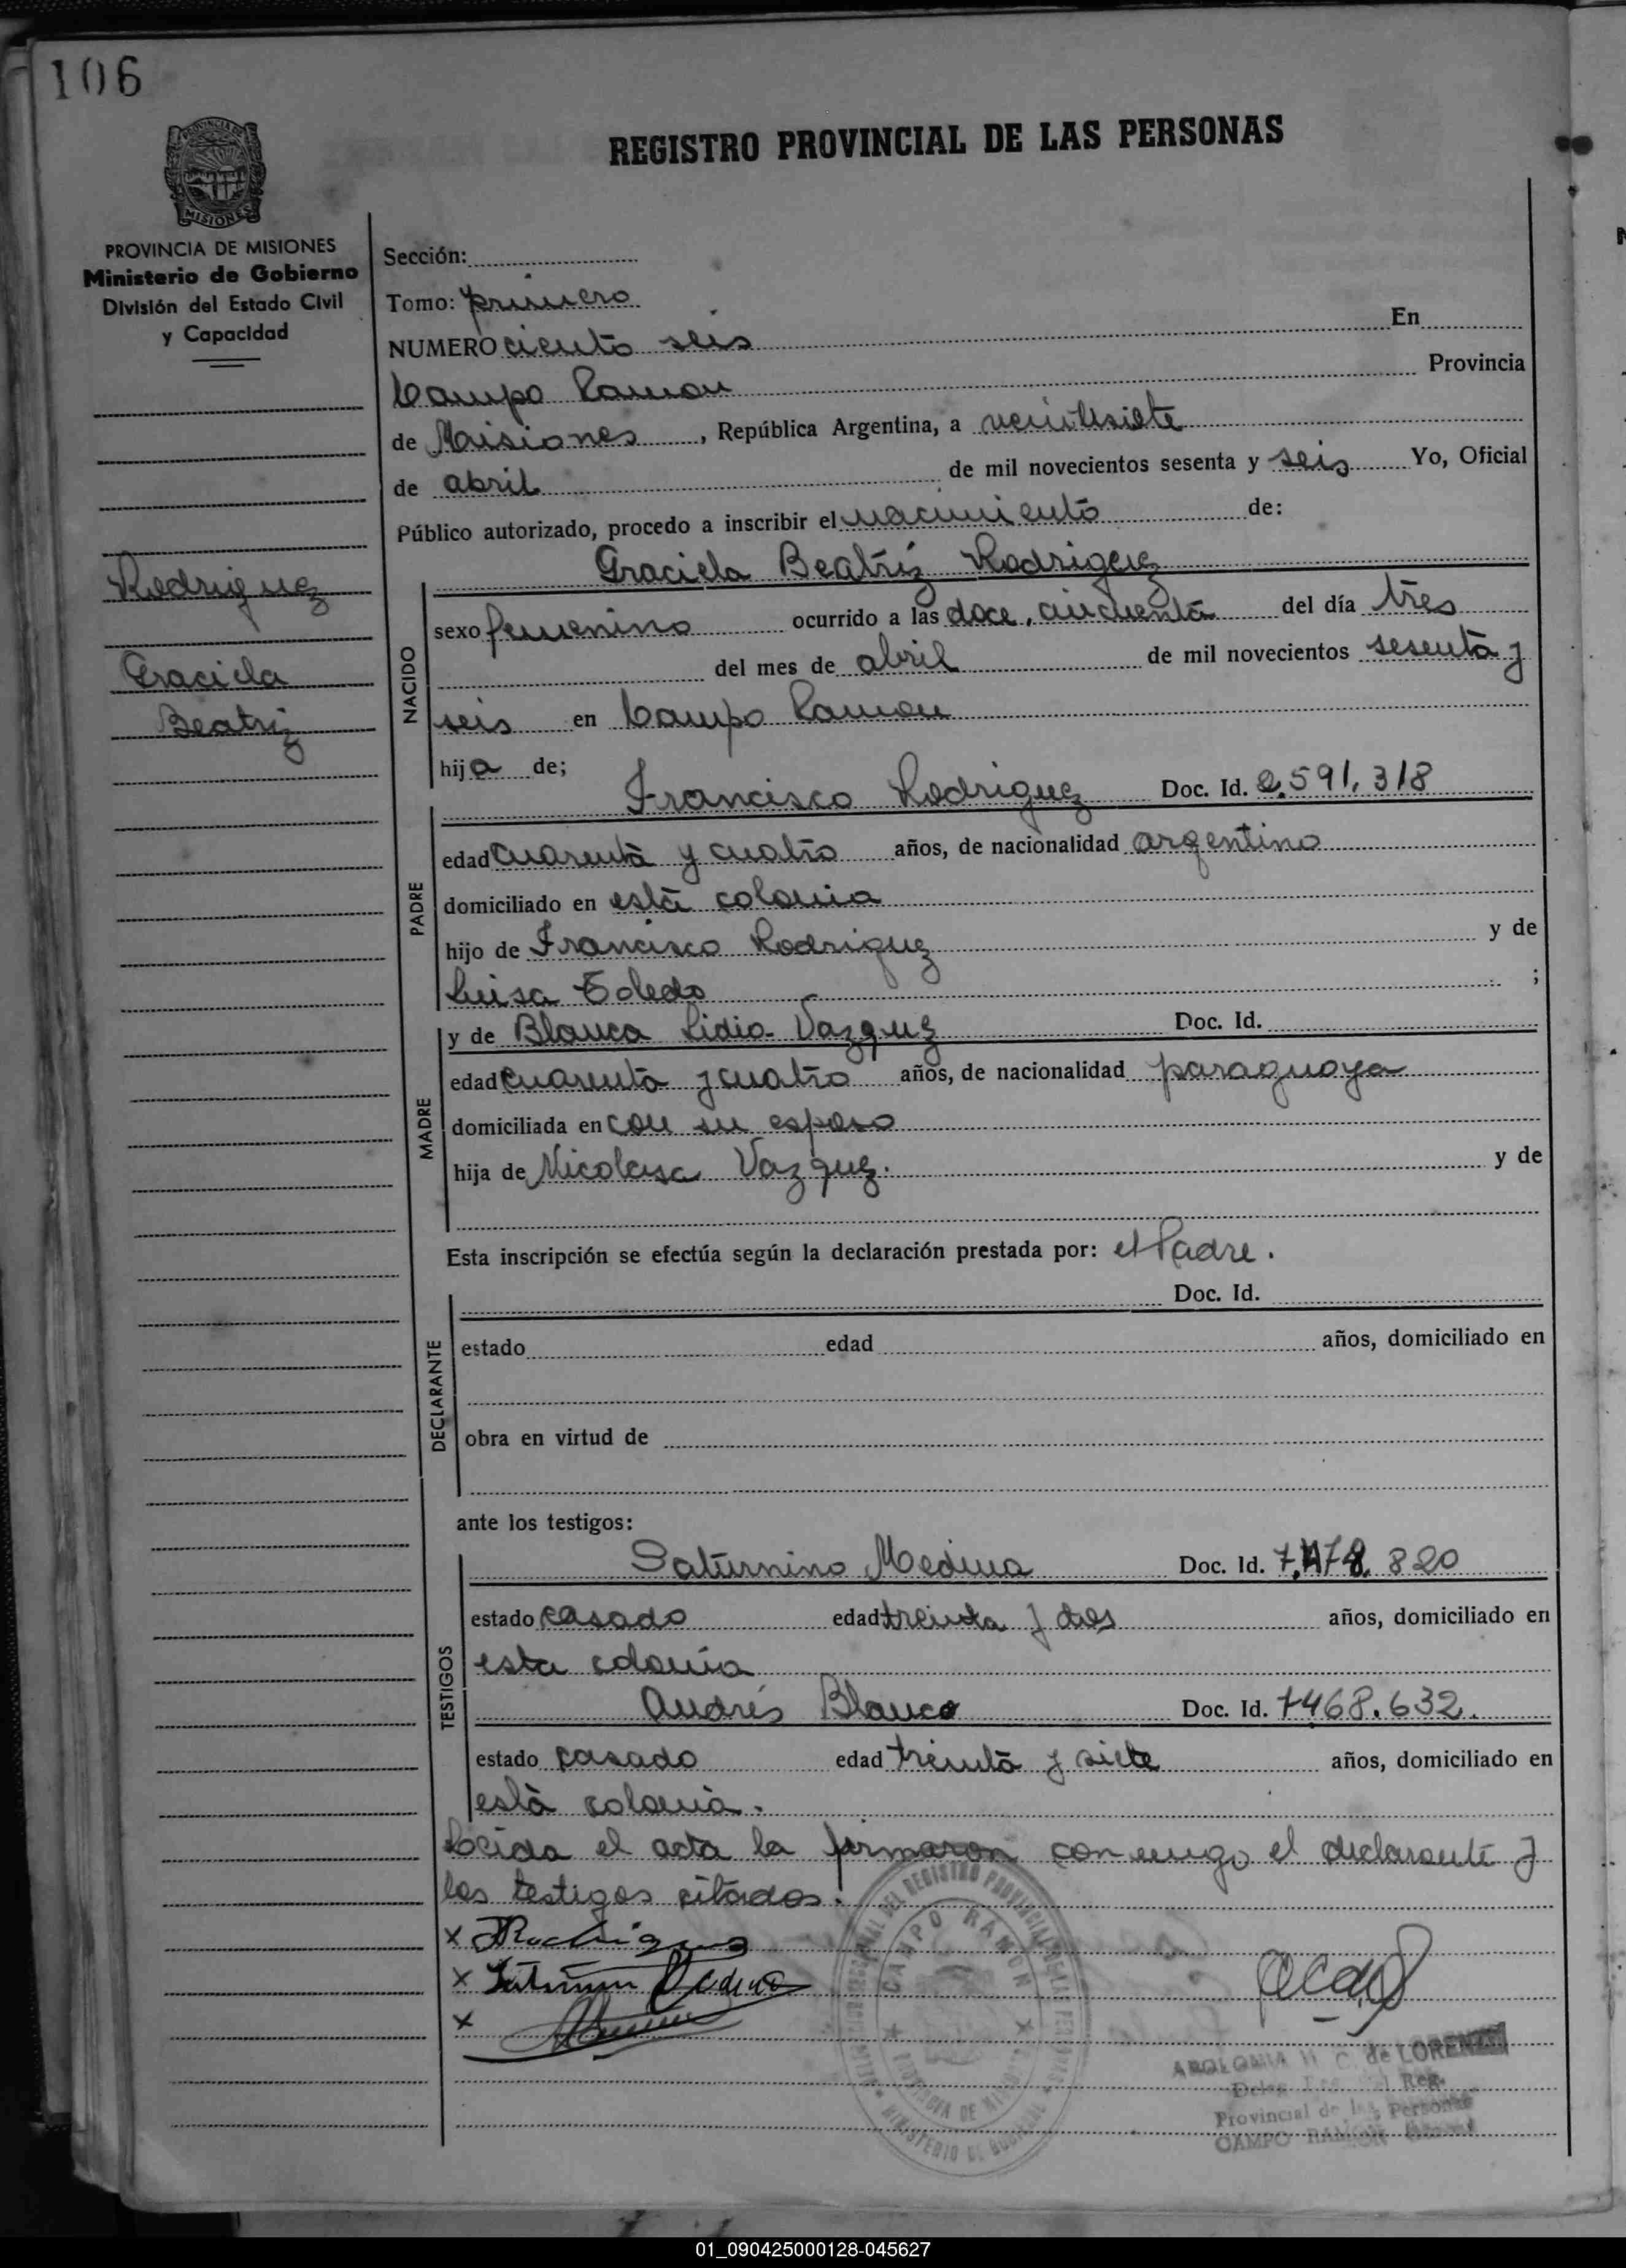 106
REGISTRO PROVINCIAL DE LAS PERSONAS
PROVINCIA DE
MISIONES
PROVINCIA DE MISIONES
Ministerio de Gobierno
División del Estado Civil
y Capacidad
Rodriguez
Graciela
Beatriz
Sección:
Tomo: primero
NUMERO ciento seis En
Campo Ramon Provincia
de Misiones, República Argentina, a veintisiete
de abril de mil novecientos sesenta y seis Yo, Oficial
Público autorizado, procedo a inscribir el nacimiento de:
Graciela Beatriz Rodriguez
NACIDO
sexo femenino ocurrido a las doce, cincuenta del día tres
del mes de abril de mil novecientos sesenta y
seis en Campo Ramon
hija de;
Francisco Rodriguez Doc. Id. 2.591.318
PADRE
edad cuarenta y cuatro años, de nacionalidad argentino
domiciliado en esta colonia
hijo de Francisco Rodriguez y de
Luisa Toledo ;
MADRE
y de Blanca Lidia Vazquez Doc. Id.
edad cuarenta y cuatro años, de nacionalidad paraguaya
domiciliada en con su esposo
hija de Nicolasa Vazquez. y de
Esta inscripción se efectúa según la declaración prestada por: el Padre.
Doc. Id.
DECLARANTE
estado edad años, domiciliado en
obra en virtud de
ante los testigos:
Saturnino Medina Doc. Id. 7.478.820
TESTIGOS
estado casado edad treinta y dos años, domiciliado en
esta colonia
Andrés Blanco Doc. Id. 7468.632.
estado casado edad treinta y siete años, domiciliado en
esta colonia.
Leida el acta la firmaron conmigo el declarante y
los testigos citados.
x FRodriguez
x Saturnino Medina
x
CAMPO RAMON
PROVINCIA DE MISIONES
MINISTERIO DE GOBIERNO
C. de LORENZO
Reg.
Provincial de las Personas
CAMPO RAMON
01_090425000128-045627